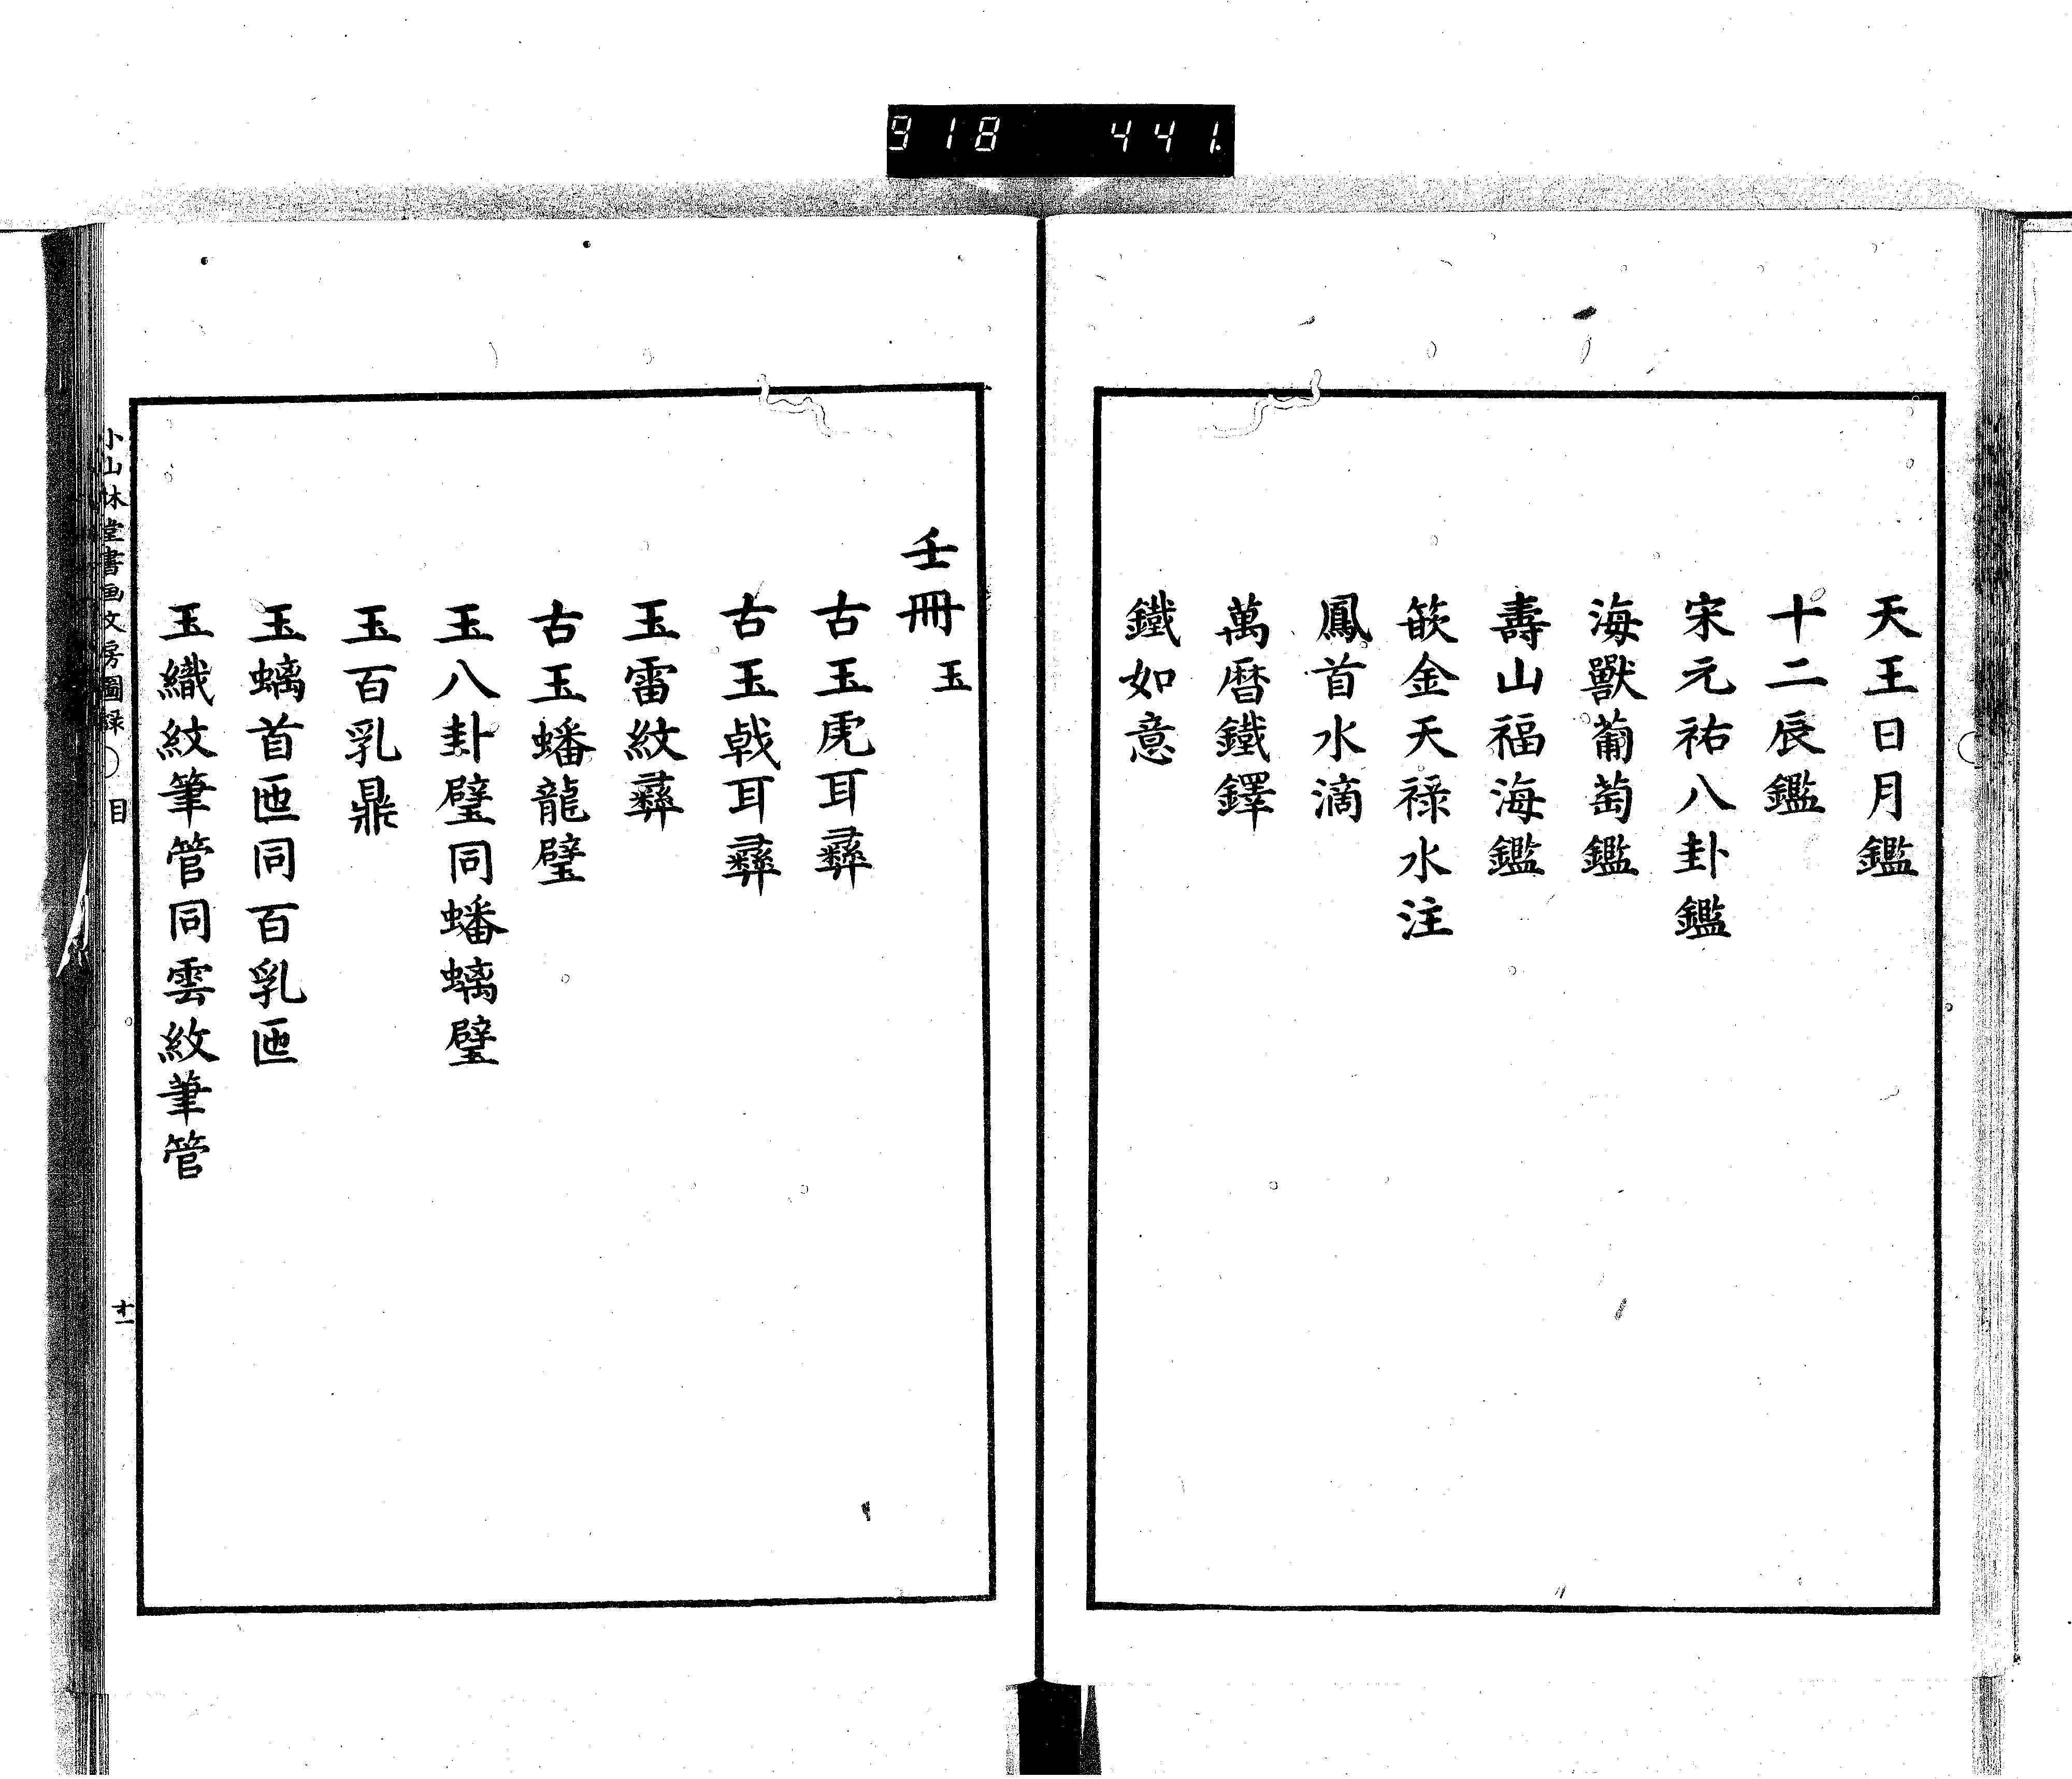 918 441.
天王日月鑑
十二辰鑑
宋元祐八卦鑑
海獸葡萄鑑
壽山福海鑑
嵌金天祿水注
鳳首水滴
萬曆鐵鐸
鐵如意
壬冊 玉
古玉虎耳彝
古玉戟耳彝
玉雷紋彝
古玉蟠龍璧
玉八卦璧同蟠螭璧
玉百乳鼎
玉螭首匜同百乳匜
玉織紋筆管同雲紋筆管
小山林堂書画文房圖錄 目 十一